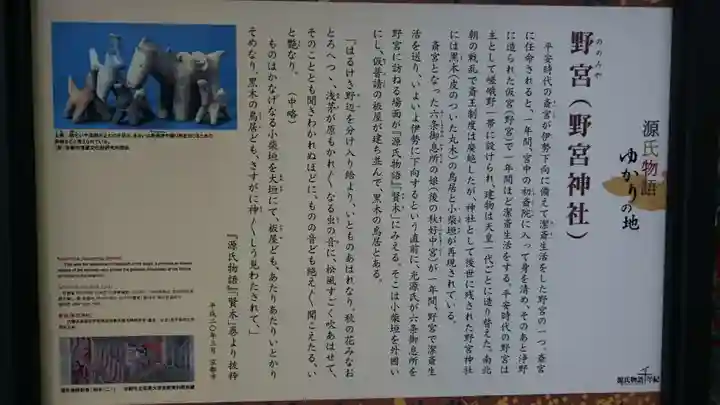 源氏物語
ゆかりの地
野宮（野宮神社）
ののみや
平安時代の斎宮が伊勢下向に備えて潔斎生活をした野宮の一つ。斎宮
に任命されると、一年間、宮中の初斎院に入って身を清め、そのあと浄野
に造られた仮宮（野宮）で一年間ほど潔斎生活をする。平安時代の野宮は
主として嵯峨野一帯に設けられ、建物は天皇一代ごとに造り替えた。南北
朝の戦乱で斎王制度は廃絶したが、神社として後世に残された野宮神社
には黒木（皮のついた丸木）の鳥居と小柴垣が再現されている。
斎宮となった六条御息所の娘（後の秋好中宮）が一年間、野宮で潔斎生
活を送り、いよいよ伊勢に下向するという直前に、光源氏が六条御息所を
野宮に訪ねる場面が『源氏物語』「賢木」にみえる。そこは小柴垣を外囲い
にし、仮普請の板屋が建ち並んで、黒木の鳥居とある。
「はるけき野辺を分け入り給より、いとものあはれなり。秋の花みなお
とろへつゝ、浅茅が原もかれ〴〵なる虫の音に、松風すごく吹あはせて、
そのことゝも聞きわかれぬほどに、ものの音ども絶え〴〵聞こえたる、い
と艶なり。　（中略）
ものはかなげなる小柴垣を大垣にて、板屋ども、あたりあたりいとかり
そめなり。黒木の鳥居ども、さすがに神〴〵しう見わたされて、」
『源氏物語』「賢木」巻より抜粋
平成二〇年三月　京都市
源氏物語千年紀